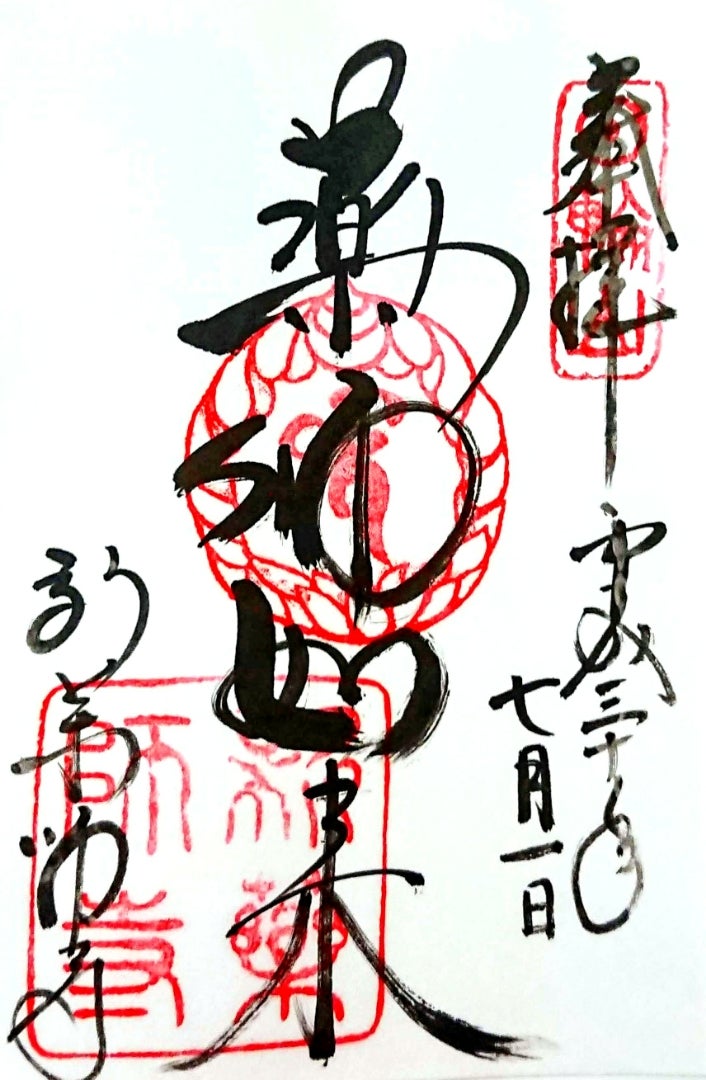 奉拝
平成三十年
七月一日
薬師如来
新薬師寺
新薬師寺